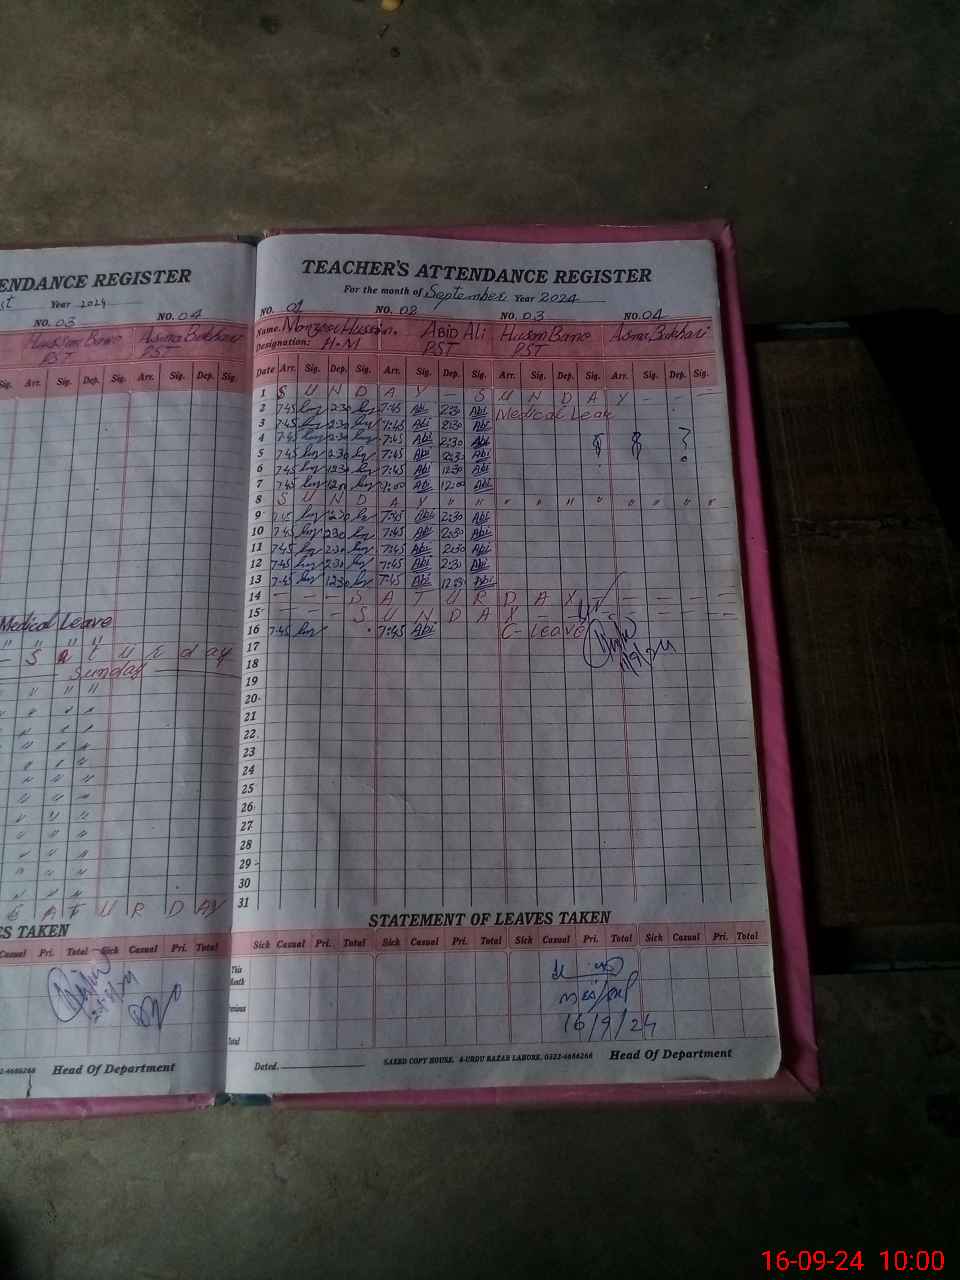 ENDANCE REGISTER
st Year 2024
NO. 03 NO. 04
Husan Bano Asma Bukhari
PST PST
Sig. Arr. Sig. Dep. Sig. Arr. Sig. Dep. Sig.
Medical Leave
S a t u r d ay
Sunday
S A T U R D AY
ES TAKEN
Casual Pri. Total Sick Casual Pri. Total
2-4686268 Head Of Department
TEACHER'S ATTENDANCE REGISTER
For the month of September Year 2024
NO. 01 NO. 02 NO. 03 NO. 04
Name. Manzoor Hussain. Abid Ali Husan Bano Asma Bukhari
Designation: H.M PST PST
Date Arr. Sig. Dep. Sig. Arr. Sig. Dep. Sig. Arr. Sig. Dep. Sig. Arr. Sig. Dep. Sig.
1 S U N D A Y - S U N D A Y - - -
2 7:45 2:30 7:45 Abi 2:30 Abi Medical Leav
3 7:45 2:30 7:45 Abi 2:30 Abi
4 7:45 2:30 7:45 Abi 2:30 Abi
5 7:45 2:30 7:45 Abi 2:30 Abi
6 7:45 12:30 7:45 Abi 12:30 Abi
7 7:45 12:00 Abi 12:00 Abi
8 S U N D A Y " " " " " " " " "
9 7:45 2:30 7:45 Abi 2:30 Abi
10 7:45 2:30 7:45 Abi 2:30 Abi
11 7:45 2:30 7:45 Abi 2:30 Abi
12 7:45 2:30 7:45 Abi 2:30 Abi
13 7:45 12:30 7:45 Abi 12:30 Abi
14 - - - S A T U R D A Y - - - -
15 - - - S U N D A Y - - - - -
16 7:45 7:45 Abi C- Leave
17
18
19
20
21
22
23
24
25
26
27
28
29
30
31
STATEMENT OF LEAVES TAKEN
Sick Casual Pri. Total Sick Casual Pri. Total Sick Casual Pri. Total Sick Casual Pri. Total
This Month
evious
16/9/24
Total
Dated. SAEED COPY HOUSE, 4-URDU BAZAR LAHORE. 0322-4686268 Head Of Department
16-09-24 10:00